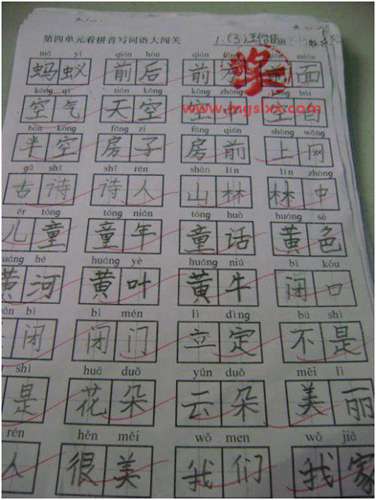 第四单元看拼音写词语大闯关
mǎ yǐ qián hòu qián
蚂蚁 前后 前 面
kōng qì tiān kōng kōng zhōng
空气 天空 空
bàn kōng fáng zi fáng qián shàng wǎng
半空 房子 房前 上网
gǔ shī shī rén shān lín lín zhōng
古诗 诗人 山林 林中
ér tóng tóng nián tóng huà huáng sè
儿童 童年 童话 黄色
huáng hé huáng yè huáng niú bì kǒu
黄河 黄叶 黄牛 闭口
bì bì mén lì dìng bú shì
闭 闭门 立定 不是
shì huā duǒ yún duǒ měi lì
是 花朵 云朵 美丽
rén hěn měi wǒ men wǒ jiā
人 很美 我们 我家